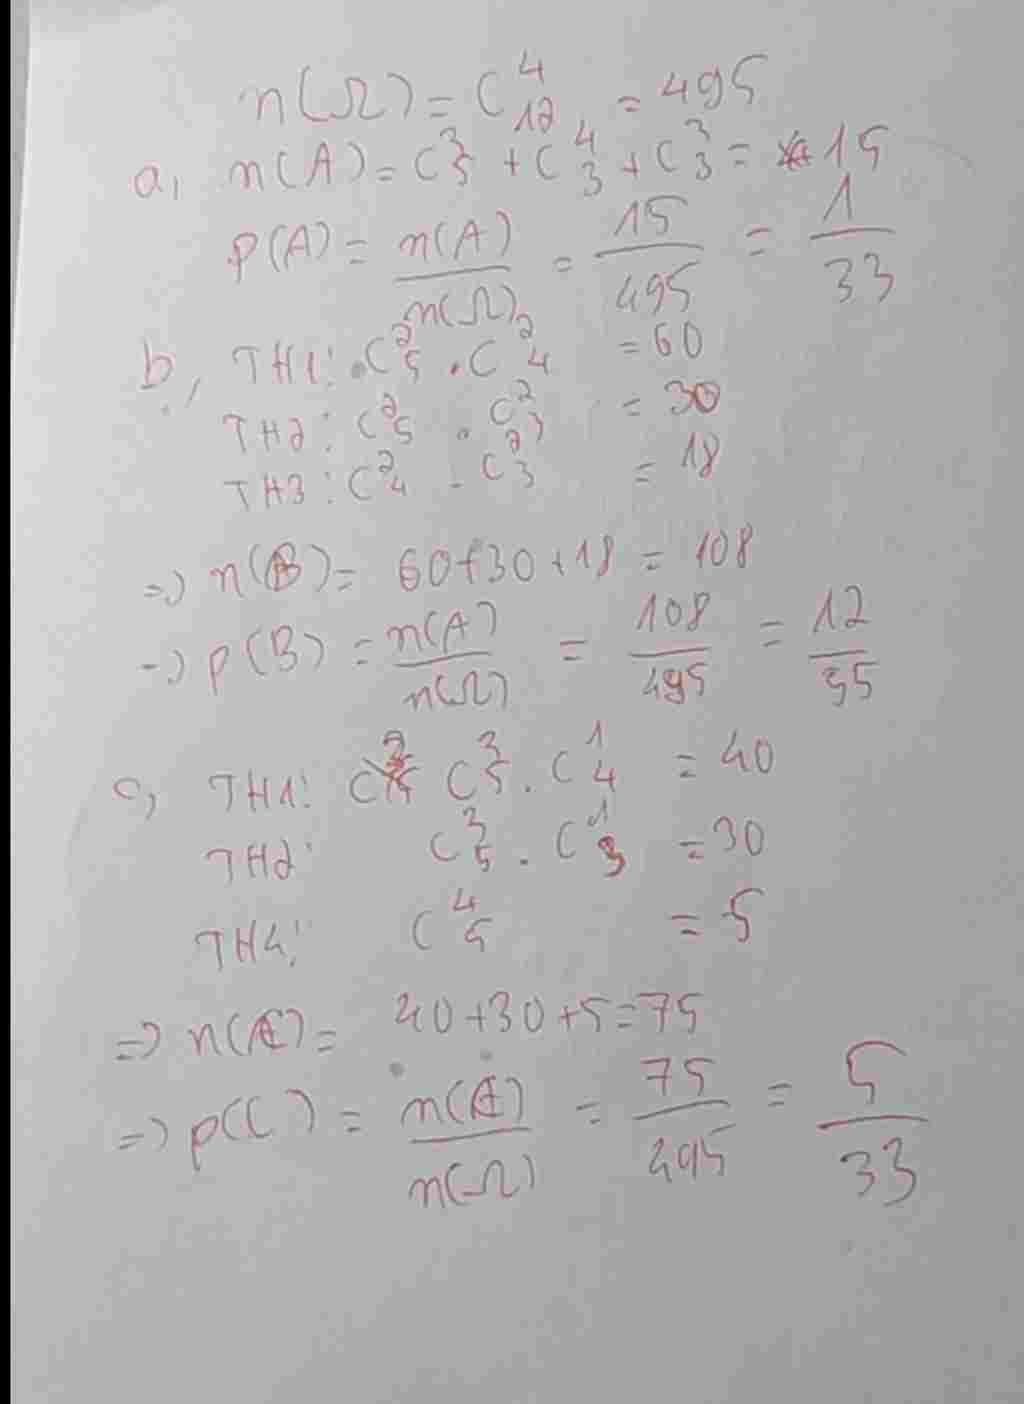 n(Ω) = C⁴₁₂ = 495
a, n(A) = C³₅ + C⁴₃ + C³₃ = 15
P(A) = n(A)/n(Ω) = 15/495 = 1/33
b, TH1: C²₅ . C²₄ = 60
TH2: C²₅ . C²₃ = 30
TH3: C²₄ . C²₃ = 18
=> n(B) = 60 + 30 + 18 = 108
=> P(B) = n(A)/n(Ω) = 108/495 = 12/55
c, TH1: C³₅ . C¹₄ = 40
TH2: C³₅ . C¹₃ = 30
TH4: C⁴₅ = 5
=> n(C) = 40+30+5=75
=> p(C) = n(C)/n(Ω) = 75/495 = 5/33